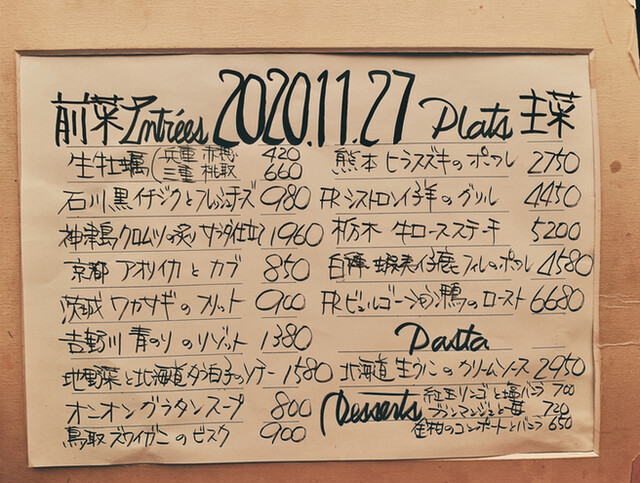 前菜 Entrées 2020.11.27 Plats 主菜
生牡蠣(兵庫 赤穂 420
三重 桃取 660
石川 黒イチジクとフレッシュチーズ 980
神津島クロムツの炙り サラダ仕立て 1960
京都 アオリイカとカブ 850
茨城 ワカサギのフリット 900
吉野川 青のりのリゾット 1380
地野菜と北海道タラ白子のソテー 1580
オニオングラタンスープ 800
鳥取 ズワイガニのビスク 900
熊本 ヒラスズキのポワレ 2750
FR シストロン仔羊のグリル 4450
栃木 牛ロースステーキ 5200
白糠 蝦夷仔鹿フィレのポワレ 4580
FR ビュルゴーション鴨のロースト 6680
Pasta
北海道 生うにのクリームソース 2950
Desserts 紅玉リンゴと塩バニラ 700
ブランマンジェと苺 720
金柑のコンポートとバニラ 650